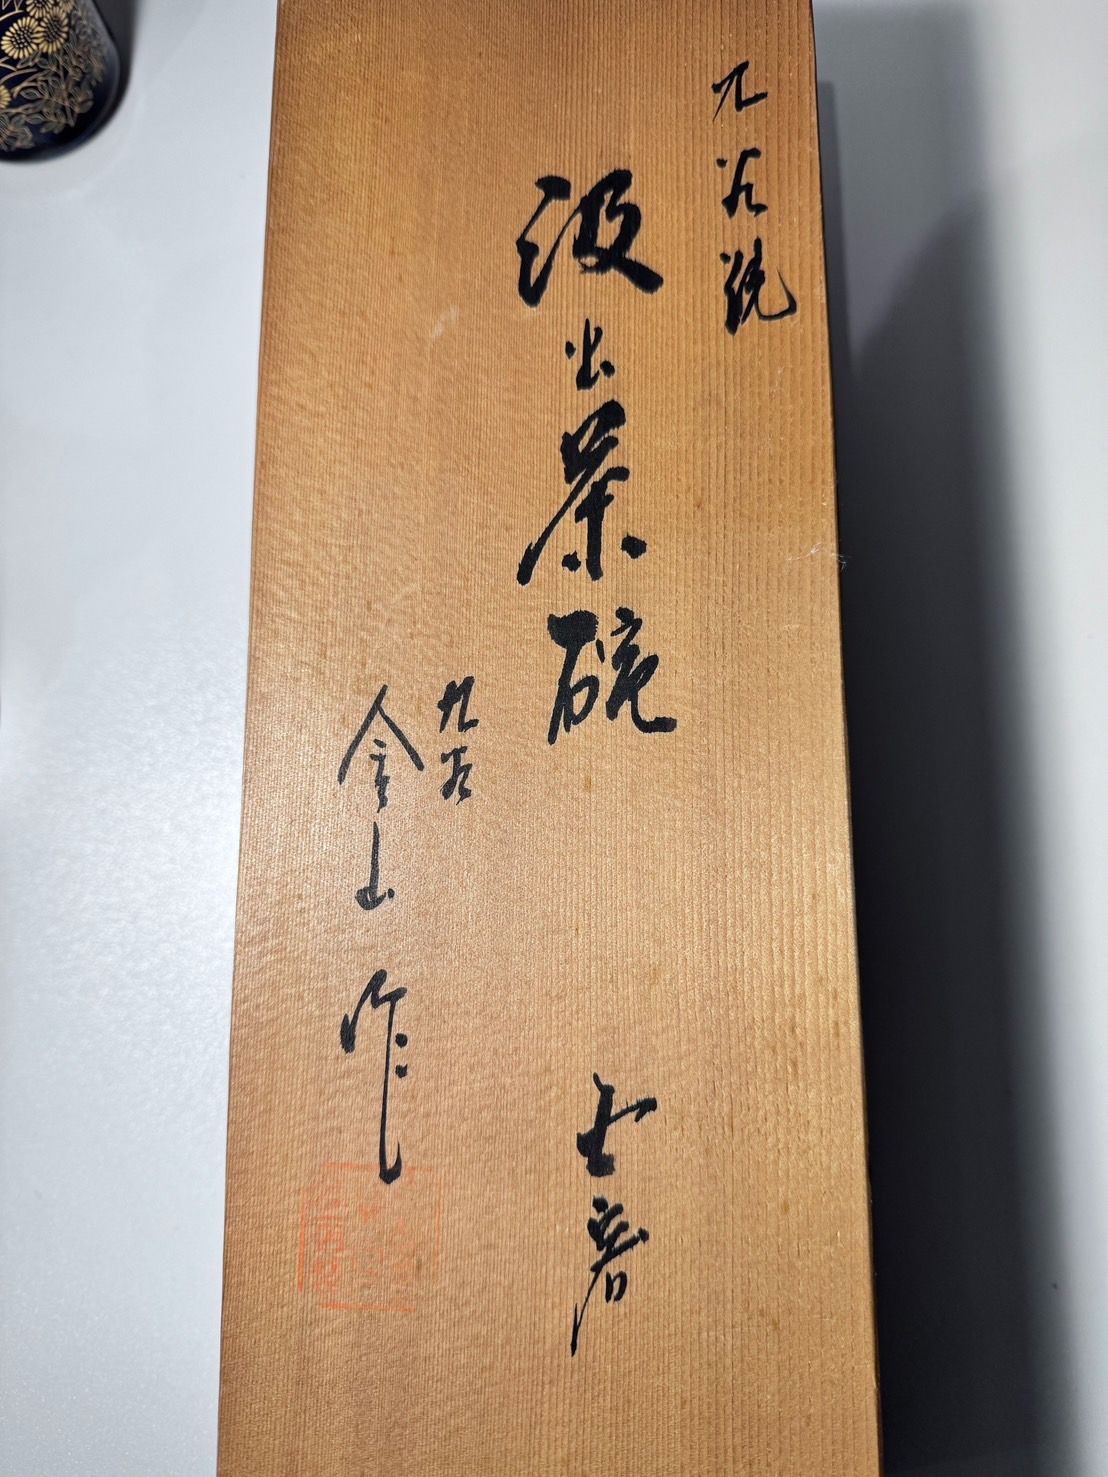 九谷焼
汲出茶碗 七客
九谷
金山作